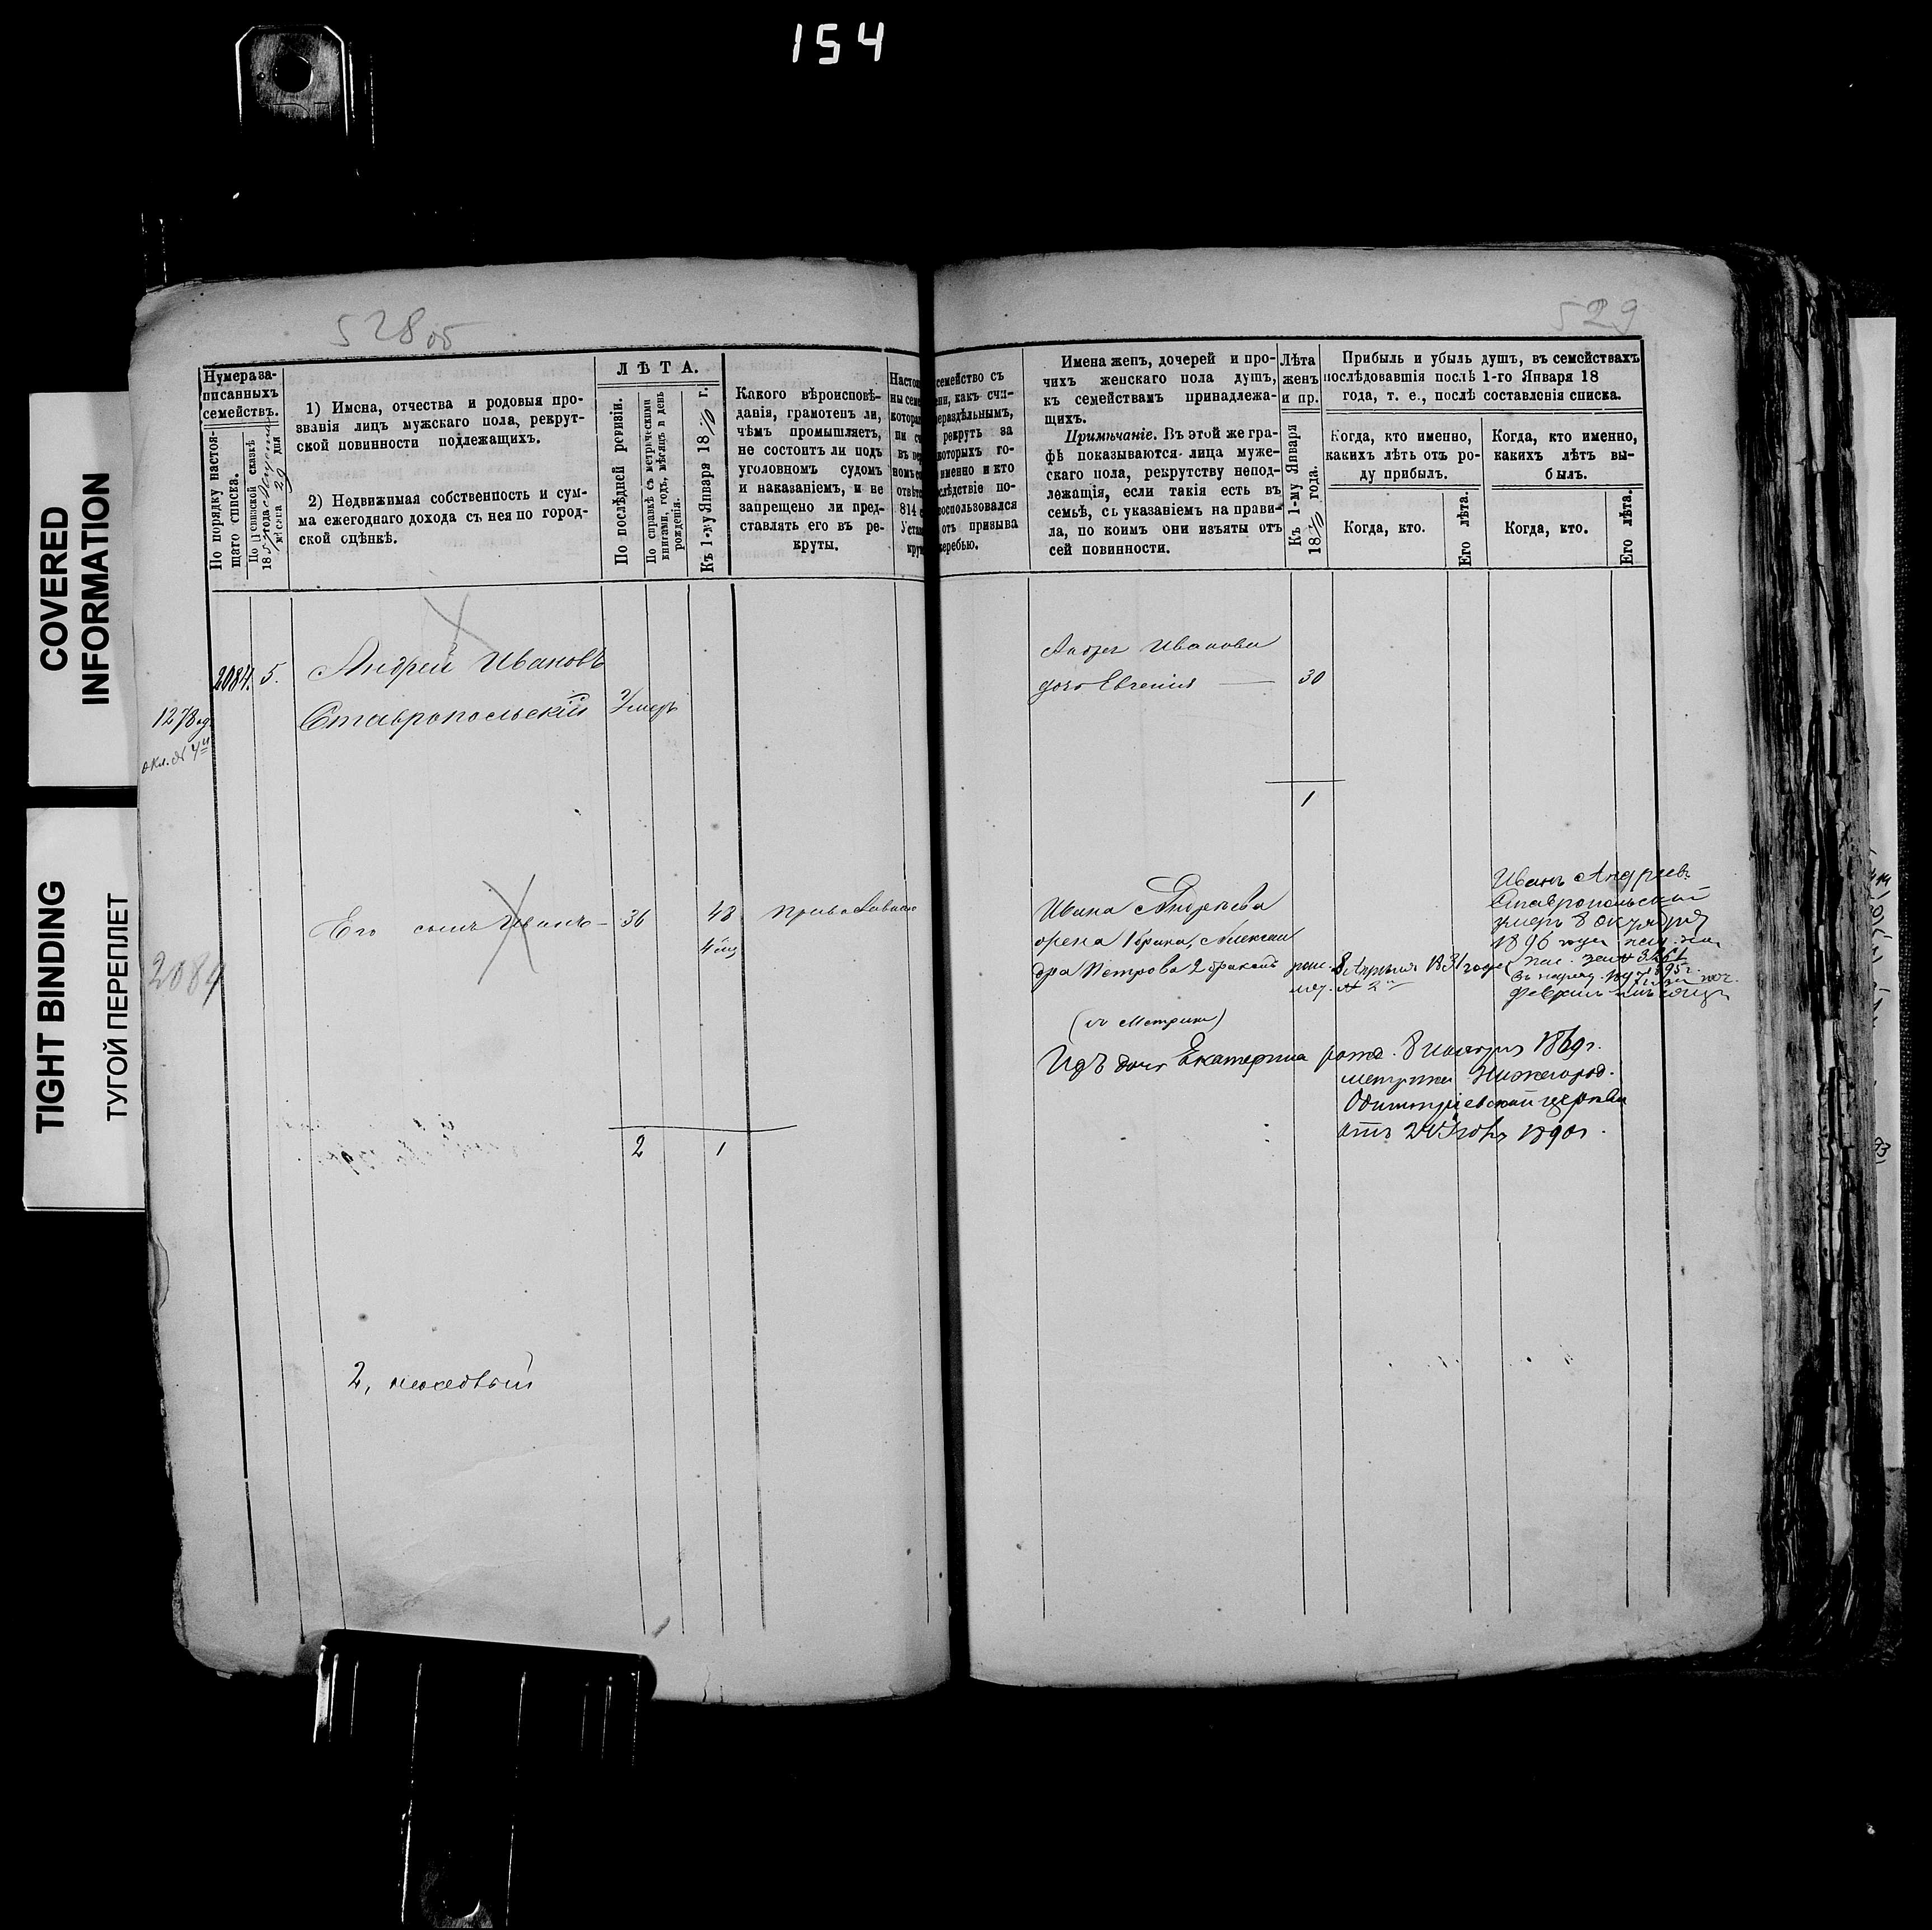 154
COVERED
INFORMATION
TIGHT BINDING
ТУГОЙ ПЕРЕПЛЕТ
528 об
529
Нумера за-
писанныхъ
семействъ.
По порядку настоя-
щаго списка.
По ревизской сказкѣ
185 года
мѣсяца 29 дня
1) Имена, отчества и родовыя про-
званія лицъ мужскаго пола, рекрут-
ской повинности подлежащихъ.
2) Недвижимая собственность и сум-
ма ежегоднаго дохода съ нея по город-
ской оцѣнкѣ.
ЛѢТА.
По послѣдней ревизіи.
По справкѣ съ метрическими
книгами, годъ, мѣсяцъ и день
рожденія.
Къ 1-му Января 1870 г.
Какого вѣроисповѣ-
данія, грамотенъ ли,
чѣмъ промышляетъ,
не состоитъ ли подъ
уголовномъ судомъ
и наказаніемъ, и не
запрещено ли пред-
ставлять его въ ре-
круты.
семейство съ
какъ счи-
нераздѣльнымъ,
рекрутъ за
которыхъ го-
именно и кто
вслѣдствіе по-
воспользовался
отъ призыва
жеребью.
Имена женъ, дочерей и про-
чихъ женскаго пола душъ,
къ семействамъ принадлежа-
щихъ.
Примѣчаніе. Въ этой же гра-
фѣ показываются лица муже-
скаго пола, рекрутству непод-
лежащія, если такія есть въ
семьѣ, съ указаніемъ на прави-
ла, по коимъ они изъяты отъ
сей повинности.
Лѣта
женъ
и пр.
Къ 1-му Января
1870 года.
Прибыль и убыль душъ, въ семействахъ
послѣдовавшія послѣ 1-го Января 18
года, т. е., послѣ составленія списка.
Когда, кто именно,
какихъ лѣтъ отъ ро-
ду прибылъ.
Когда, кто.
Его лѣта.
Когда, кто именно,
какихъ лѣтъ вы-
былъ.
Когда, кто.
Его лѣта.
2084. 5. Андрей Ивановъ
Ставропольскій Умеръ
1278
Андрея Иванова
дочь Евгенія — 30
1
2084
Его сынъ Иванъ — 36 48
Ивана Андреева
жена Александ
ра Петрова 2 бракомъ 8 Апрѣля 1831 года
Иванъ Андреевъ
Ставропольскій
умеръ 8 октября
1896 года
(въ Метрике)
Ихъ дочь Екатерина рожд. 8 ноября 1869г.
метрика Нижегород.
Димитріевской церкви
отъ 1890г.
2 1
2,